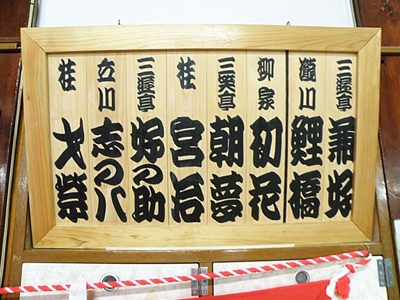 三遊亭 兼好
瀧川 鯉橋
柳家 初花
三笑亭 朝夢
桂 宮治
三遊亭 好の助
立川 志の八
桂 才紫